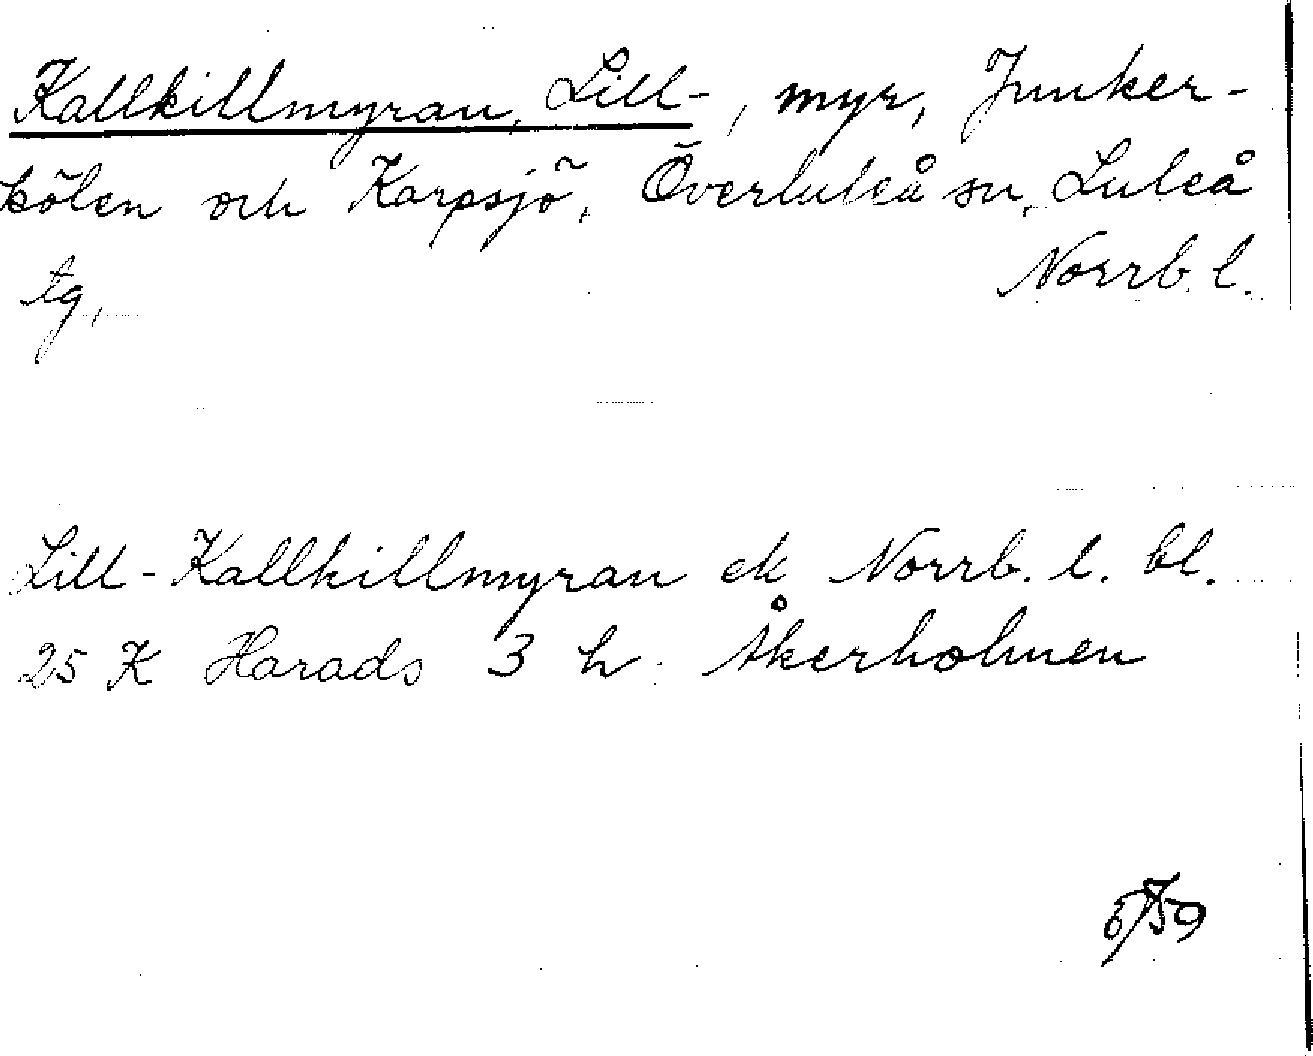 Kallkillmyran, Lill-, myr, Junker-
kölen och Karpsjö, Överluleå sn, Luleå
tg, Norrb. l.
Lill-Kallkillmyran ek Norrb. l. bl.
25 K Harads 3 h. Åkerholmen